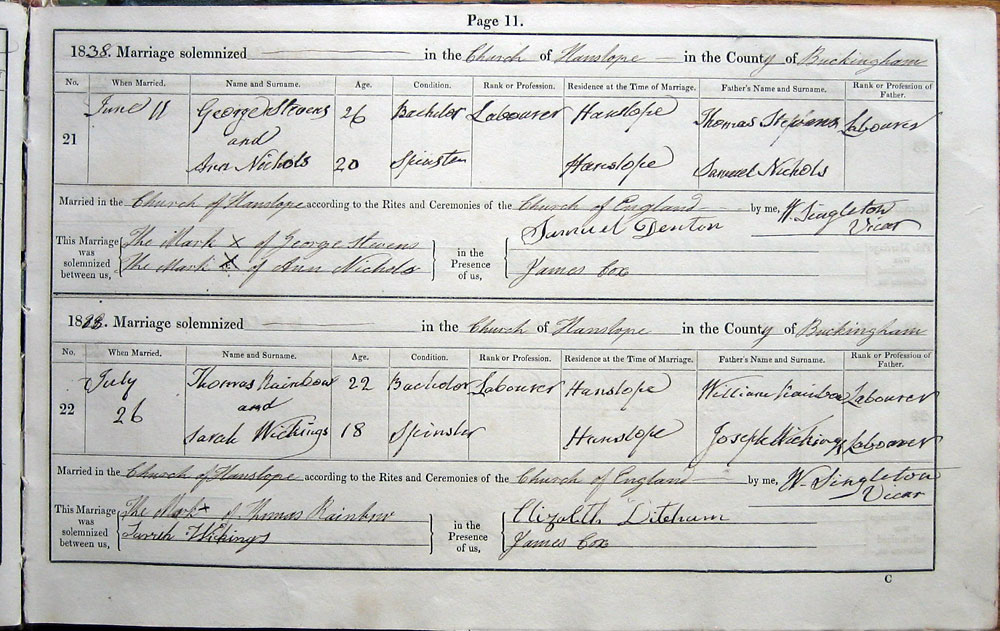 Page 11.
1838. Marriage solemnized in the Church of Hanslope in the County of Buckingham
No. When Married. Name and Surname. Age. Condition. Rank or Profession. Residence at the Time of Marriage. Father's Name and Surname. Rank or Profession of Father.
21 June 11 George Stevens 26 Bachelor Labourer Hanslope Thomas Stevens Labourer
and
Ann Nichols 20 Spinster Hanslope Samuel Nichols
Married in the Church of Hanslope according to the Rites and Ceremonies of the Church of England by me, W. Singleton Vicar
This Marriage was solemnized between us, The Mark X of George Stevens in the Presence of us, Samuel Denton
The Mark X of Ann Nichols James Cox
1838. Marriage solemnized in the Church of Hanslope in the County of Buckingham
No. When Married. Name and Surname. Age. Condition. Rank or Profession. Residence at the Time of Marriage. Father's Name and Surname. Rank or Profession of Father.
22 July 26 Thomas Rainbow 22 Bachelor Labourer Hanslope William Rainbow Labourer
and
Sarah Wickings 18 Spinster Hanslope Joseph Wickings Labourer
Married in the Church of Hanslope according to the Rites and Ceremonies of the Church of England by me, W. Singleton Vicar
This Marriage was solemnized between us, The Mark X of Thomas Rainbow in the Presence of us,
James Cox
C